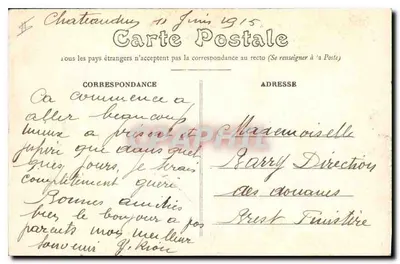 Chateaudun 11 Juin 1915
Carte Postale
Tous les pays étrangers n'acceptent pas la correspondance au recto (Se renseigner à la Poste)
CORRESPONDANCE
ADRESSE
Ca commence a
aller beaucoup
mieux a présent et
j'espère que dans quel
ques jours, je serais
complètement guéri
Bonnes amitiés
bien le bonjour a vos
parents mon meilleur
souvenir
Mademoiselle
Barry Direction
des douanes
Brest Finistère